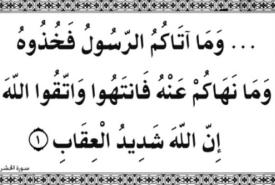 ... وَمَا آتَاكُمُ الرَّسُولُ فَخُذُوهُ
وَمَا نَهَاكُمْ عَنْهُ فَانتَهُوا وَاتَّقُوا اللَّهَ
إِنَّ اللَّهَ شَدِيدُ الْعِقَابِ ١
سورة الحشر